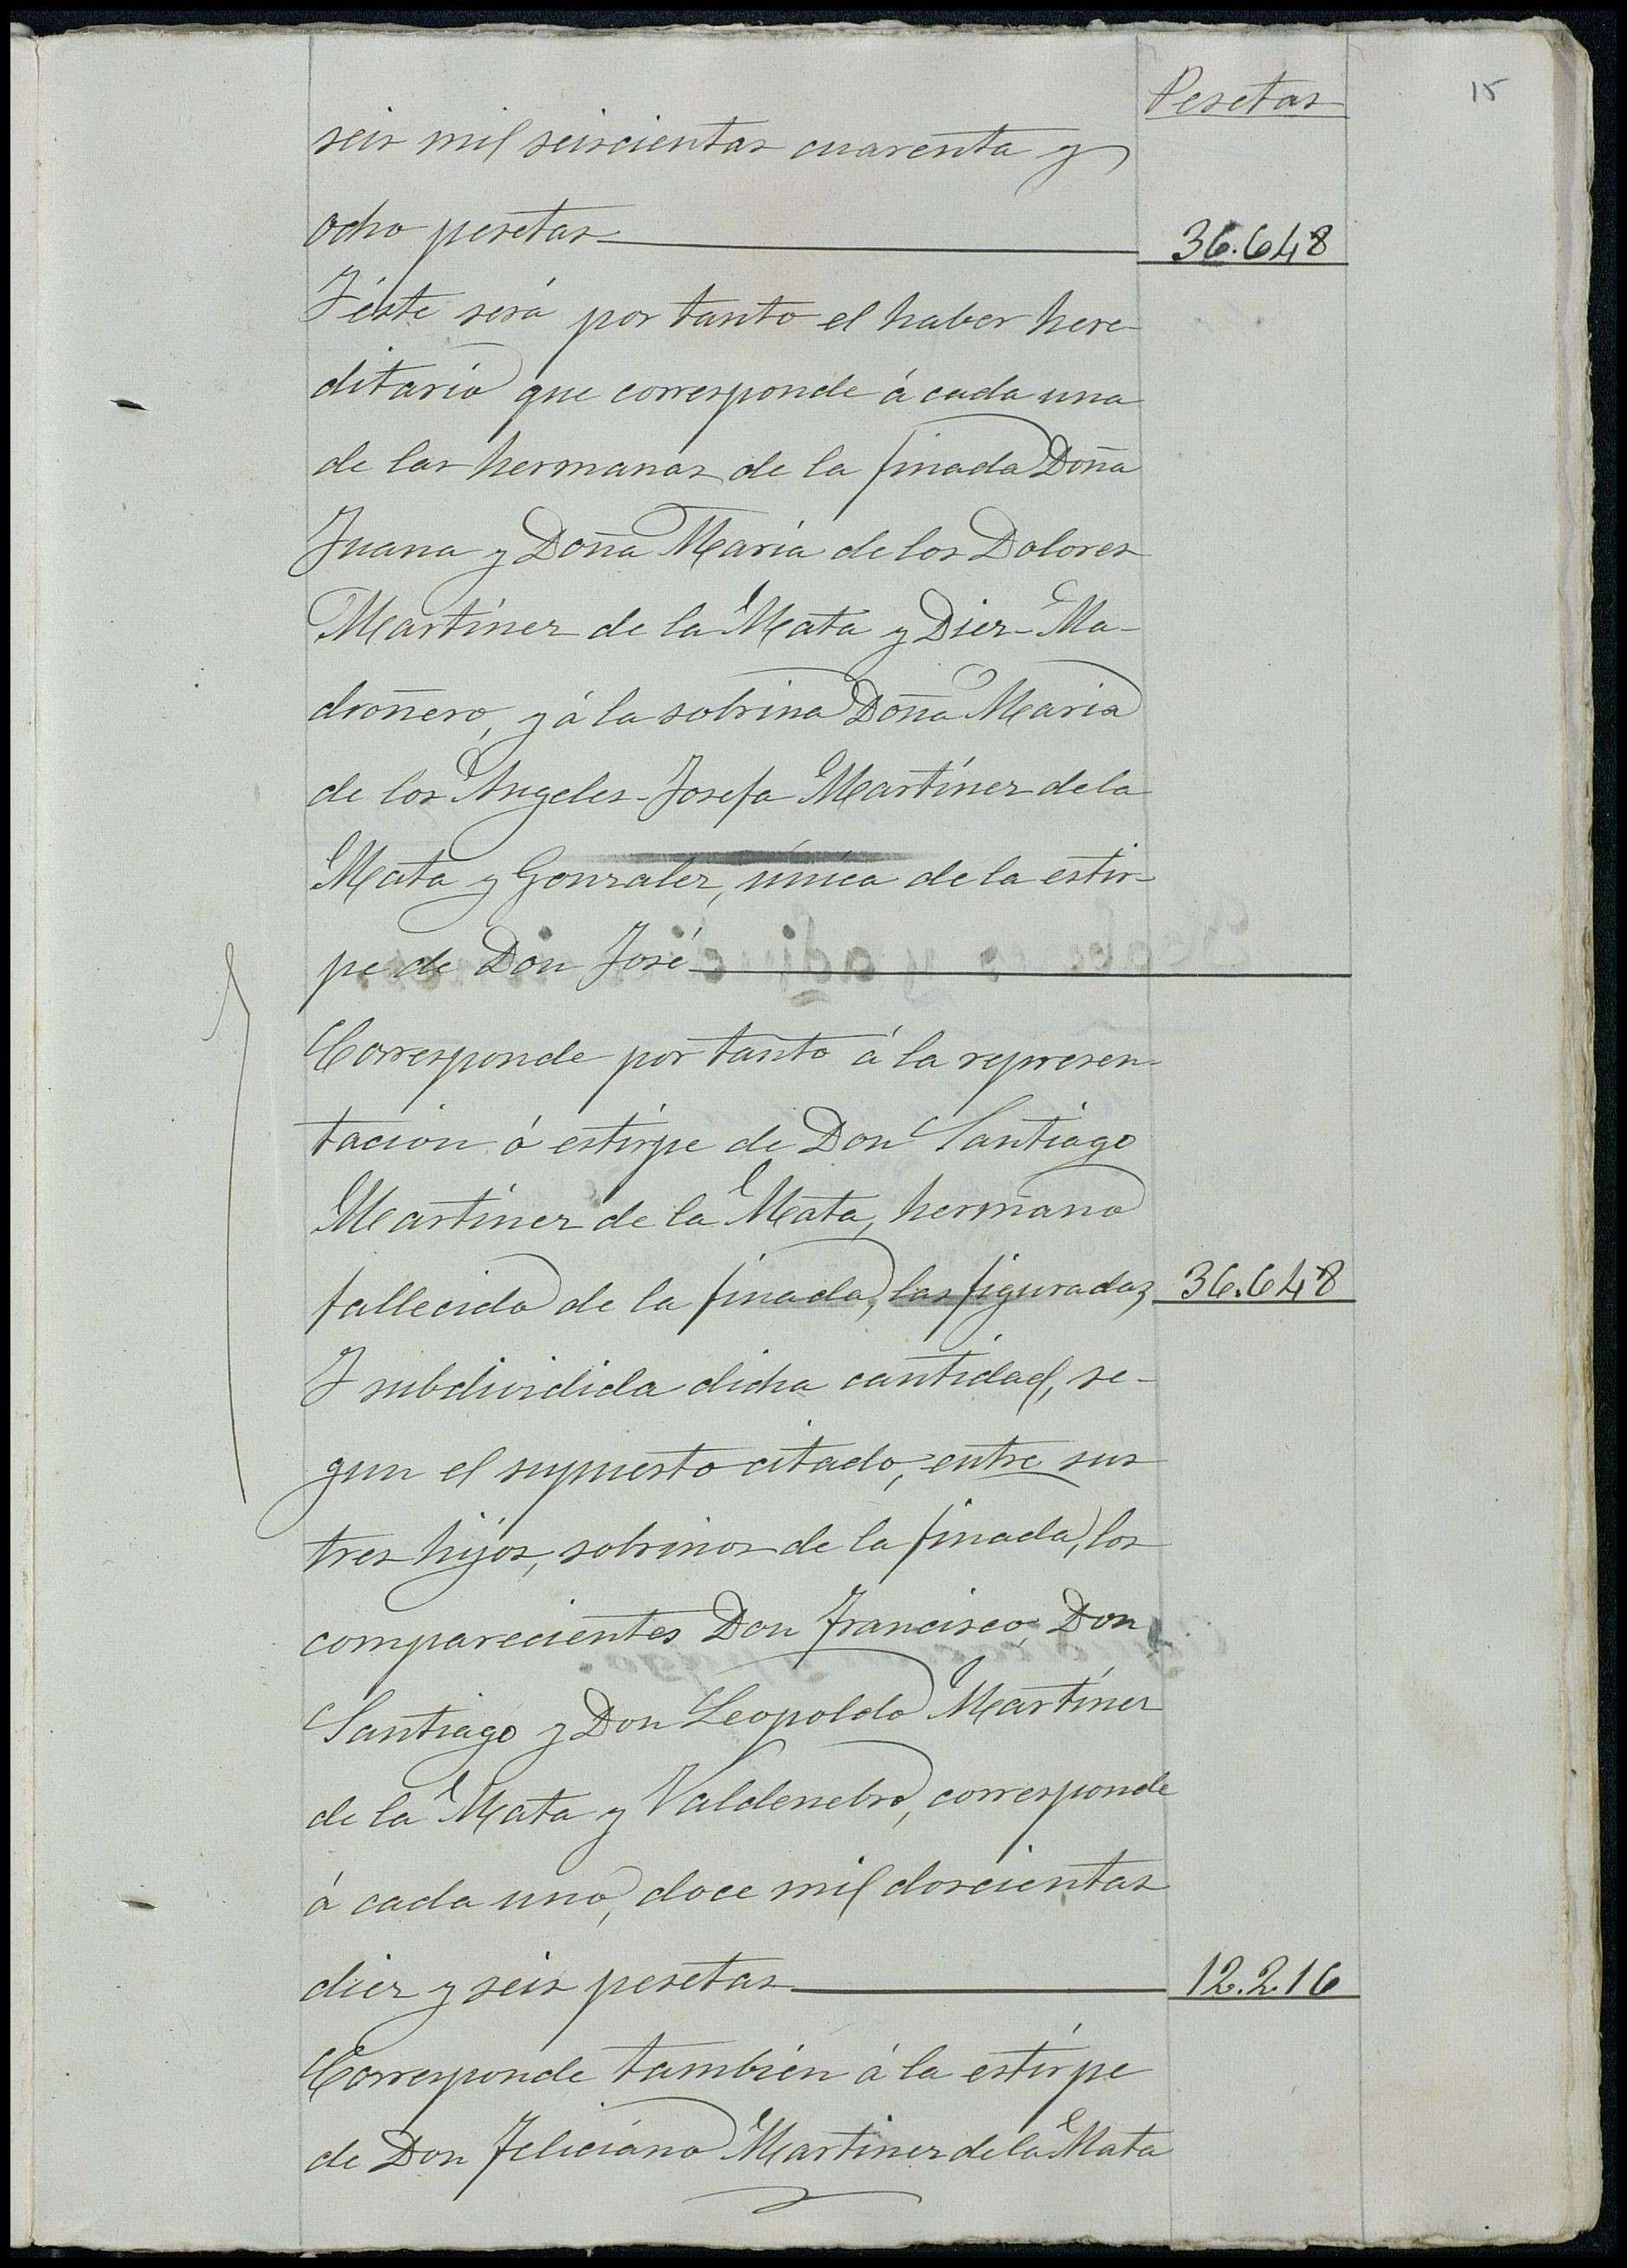 Pesetas
15
seis mil seiscientas cuarenta y
ocho pesetas 36.648
Y éste será por tanto el haber here-
ditario que corresponde á cada una
de las hermanas de la finada Doña
Juana y Doña María de los Dolores
Martínez de la Mata y Diez-Ma-
droñero, y á la sobrina Doña María
de los Angeles-Josefa Martínez de la
Mata y Gonzalez, única de la estir-
pe de Don José
Corresponde por tanto á la represen-
tación ó estirpe de Don Santiago
Martínez de la Mata, hermano
fallecido de la finada, las figuradas 36.648
Y subdividida dicha cantidad, se-
gun el supuesto citado, entre sus
tres hijos, sobrinos de la finada, los
comparecientes Don Francisco, Don
Santiago y Don Leopoldo Martínez
de la Mata y Valdenebro, corresponde
á cada uno, doce mil doscientas
diez y seis pesetas 12.216
Corresponde también á la estirpe
de Don Feliciano Martinez de la Mata